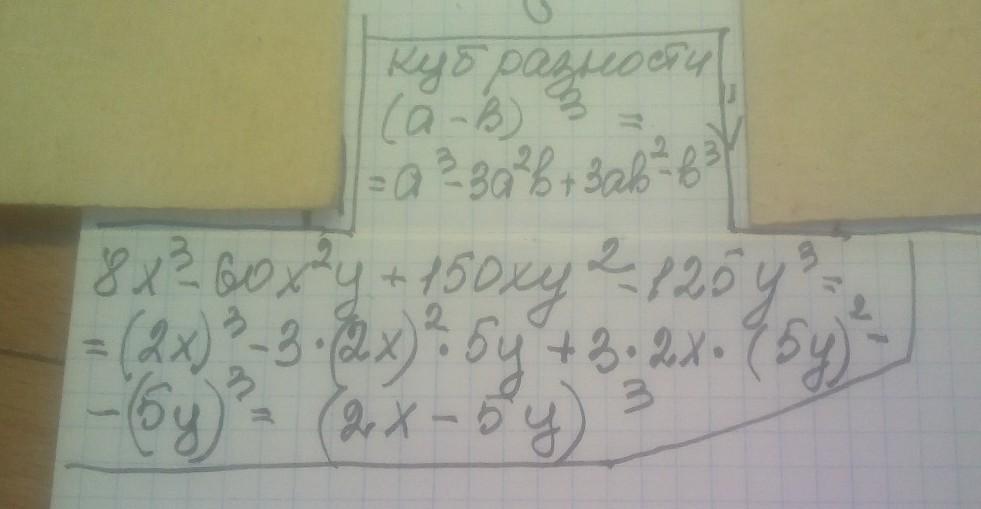 куб разности
(a - b)³ =
= a³ - 3a²b + 3ab² - b³
8x³ - 60x²y + 150xy² - 125y³ =
= (2x)³ - 3 · (2x)² · 5y + 3 · 2x · (5y)² -
- (5y)³ = (2x - 5y)³